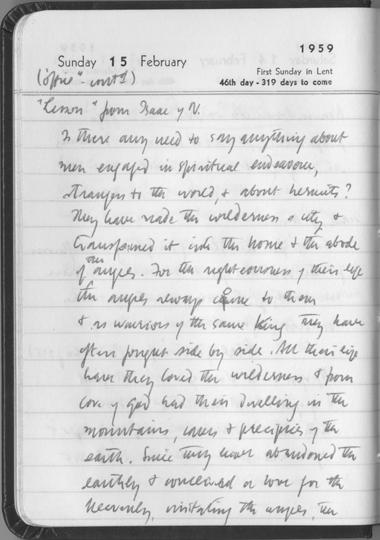 1959
Sunday 15 February
First Sunday in Lent
46th day - 319 days to come
("office" - cont'd)
"Lesson" from Isaac of N.
Is there any need to say anything about
men engaged in spiritual endeavour,
strangers to the world, & about hermits?
They have made the wilderness a city &
transformed it into the home & the abode
of angels. For the righteousness of their life
the angels always came to them
& as warriors of the same King they have
often fought side by side. All their life
have they loved the wilderness & from
love of God had their dwelling in the
mountains, caves & precipices of the
earth. Since they have abandoned the
earthly & conceived a love for the
heavenly, imitating the angels, the